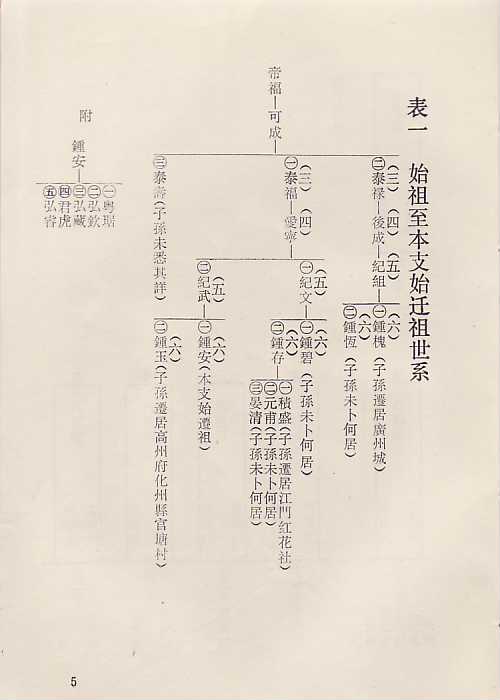 表一 始祖至本支始迁祖世系
帝福—可成—
(三)㊁泰禄—(四)後成—(五)紀組—
(六)㊀鍾槐(子孫遷居廣州城)
(六)㊁鍾恆(子孫未卜何居)
(三)㊀泰福—(四)愛寧—
(五)㊀紀文—
(六)㊀鍾碧(子孫未卜何居)
(六)㊁鍾存—
㊀積盛(子孫遷居江門红花社)
㊁元甫(子孫未卜何居)
㊂晏清(子孫未卜何居)
(五)㊁紀武—
(六)㊀鍾安(本支始遷祖)
(六)㊁鍾玉(子孫遷居高州府化州縣官塘村)
㊂泰壽(子孫未悉其詳)
附 鍾安—
㊀粤琚
㊁弘欽
㊂弘藏
㊃君虎
㊄弘睿
5